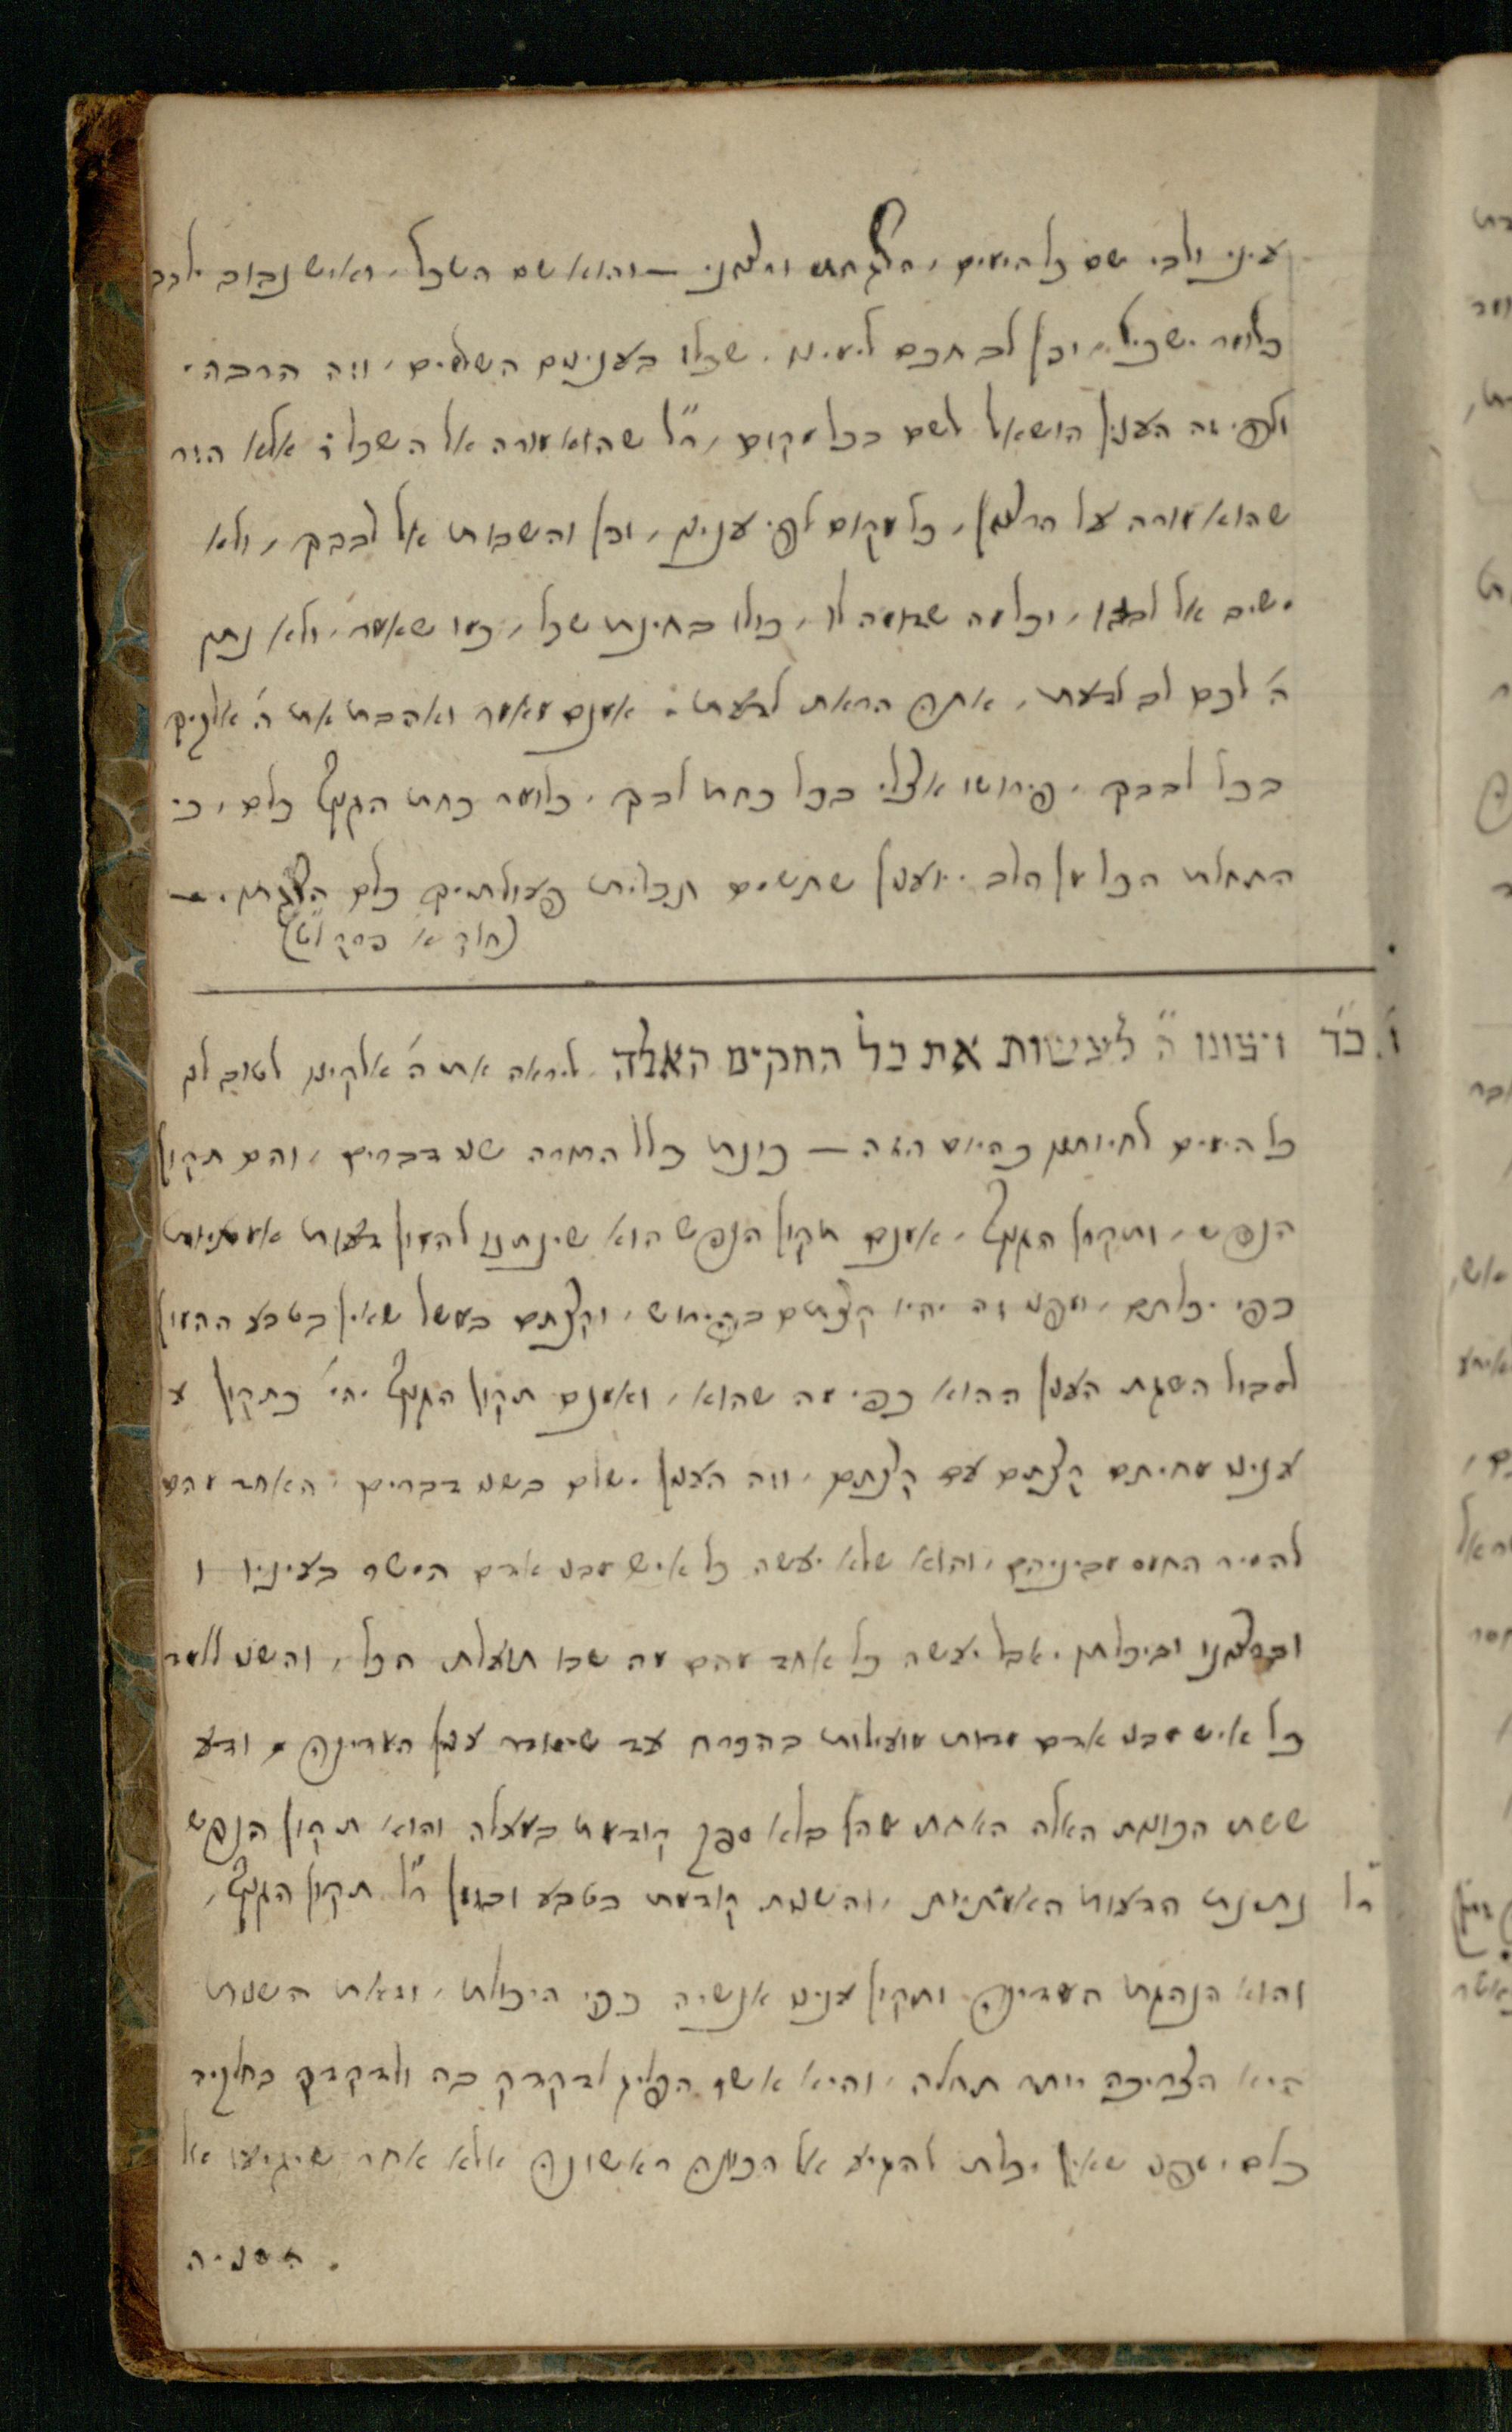 עיני ולבי שם כל הימים, השגחתי ורצוני — והוא שם השכל, ואיש נבוב ילבב
כלומר ישכיל, וכן לב חכם לימינו, שכלו בענינים השלמים, וזה הרבה.
ולפי זה הענין הושאל לשם בכל מקום, ר"ל שהוא מורה אל השכל, אלא הזר
שהוא מורה על הרצון, כל מקום לפי ענינו, וכן והשבות אל לבבך, ולא
ישיב אל לבו, וכל מה שדומה לו, כולו בחינת שכל, כמו שאמר, ולא נתן
ה' לכם לב לדעת, אתה הראת לדעת. אמנם מאמר ואהבת את ה' אלקיך
בכל לבבך, פירושו אצלי בכל כחות לבך, כלומר כחות הגוף כלם, כי
התחלת הכל מן הלב, וענין שתשים תכלית פעולותיך כלם השגתו. —
(חלק א' פרק ל"ט)
ו', כ"ד ויצונו ה' לעשות את כל החקים האלה ליראה את ה' אלקינו לטוב לנו
כל הימים לחיותנו כהיום הזה — כונת כלל התורה שני דברים, והם תקון
הנפש, ותקון הגוף, אמנם תקון הנפש הוא שינתנו להמון דעות אמתיות
כפי יכלתם, ומפני זה יהיו קצתם בפירוש, וקצתם במשל שאין בטבע ההמון
לסבול השגת הענין ההוא כפי מה שהוא, ואמנם תקון הגוף יהי' כתקון ע
עניני מחיתם קצתם עם קצתם, וזה הענין ישלם בשני דברים, האחד מהם
להסיר החמס מביניהם, והוא שלא יעשה כל איש מבני אדם הישר בעיניו ו
וברצונו וביכלתו, אבל יעשה כל אחד מהם מה שבו תועלת הכל, והשני ללמד
כל איש מבני אדם מדות מועילות בהכרח עד שיסודר ענין המדינה, ודע
ששתי הכונות האלה האחת מהן בלא ספק קודמת במעלה והוא תקון הנפש
ר"ל נתינת הדעות האמתיות, והשנית קודמת בטבע ובזמן ר"ל תקון הגוף,
והוא הנהגת המדינה ותקון עניני אנשיה כפי היכולת, וזאת השנית
היא הצריכה יותר תחלה, והיא אשר הפליג לדקדק בה ולדקדק בחלקיה
כלם, מפני שאין יכלת להגיע אל הכונה הראשונה אלא אחר שיגיעו אל
השניה.